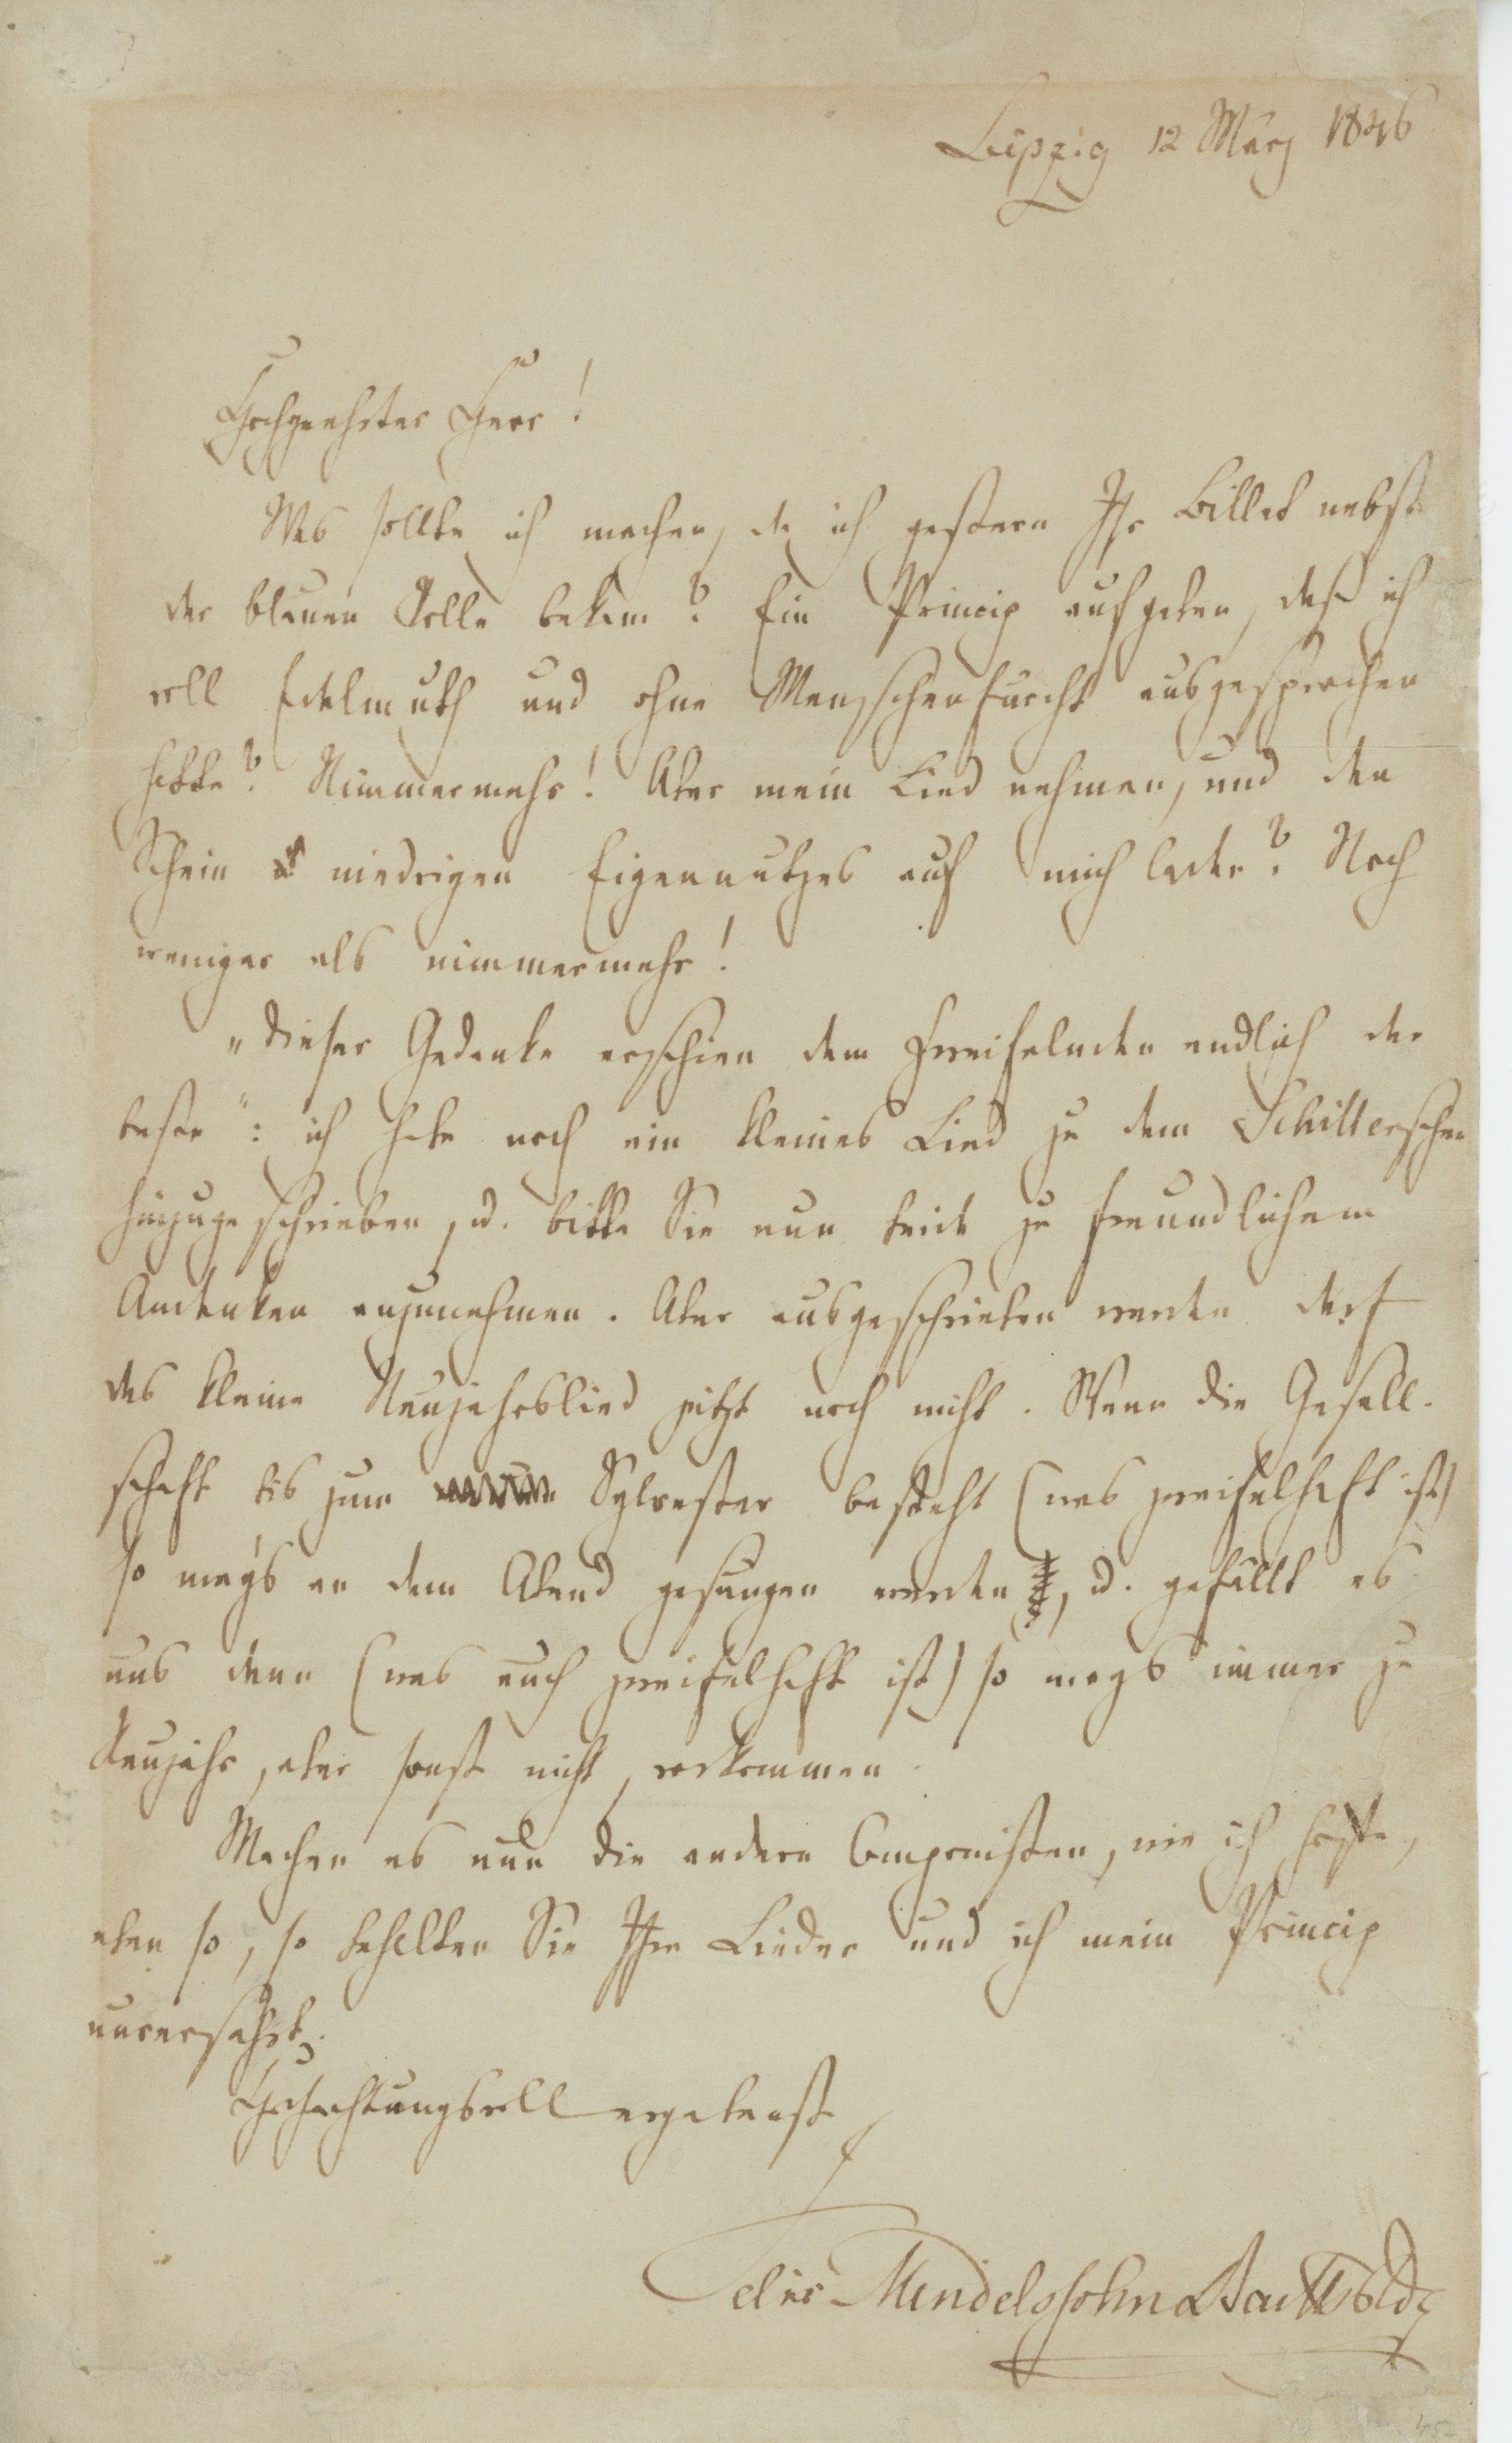 Leipzig 12 März 1846
Hochgeehrter Herr!
Was sollte ich machen, da ich gestern Ihr Billet nebst
der blauen Rolle bekam? Ein Princip aufgeben, daß ich
voll Edelmuth und ohne Menschenfurcht ausgesprochen
hatte? Nimmermehr! Aber mein Lied nehmen, und den
Schein niedrigen Eigennutzes auf mich laden? Noch
weniger als nimmermehr!
„Dieser Gedanke erschien dem Zweifelnden endlich der
beste": ich habe noch ein kleines Lied zu dem Schillerschen
hinzugeschrieben, u. bitte Sie nun beide zu freundlichem
Andenken anzunehmen. Aber ausgeschrieben werden darf
das kleine Neujahrslied jetzt noch nicht. Wenn die Gesell-
schaft bis zum Sylvester besteht (was zweifelhaft ist)
so mag's an dem Abend gesungen werden, u. gefällt es
uns dann (was auch zweifelhaft ist) so mags immer zu
Neujahr, aber sonst nicht, vorkommen.
Machen es nun die andern Componisten, wie ich hoffe,
eben so, so behalten Sie Ihre Lieder und ich mein Princip
unversehrt.
Hochachtungsvoll ergebenst
Felix Mendelssohn Bartholdy